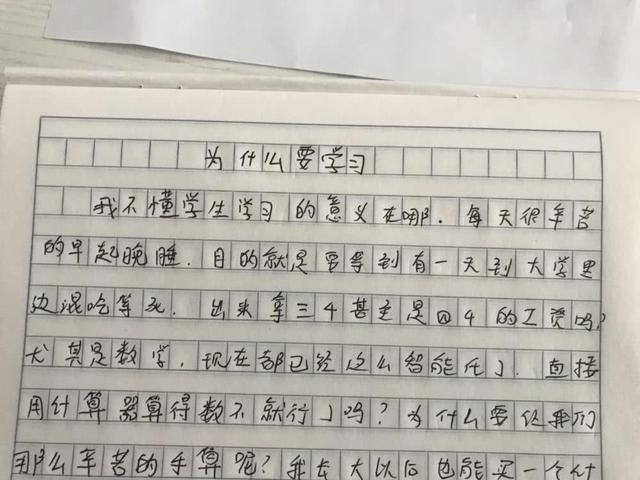 为什么要学习
我不懂学生学习的意义在哪.每天很辛苦
的早起晚睡.目的就是要等到有一天到大学里
边混吃等死.出来拿三4甚至是四4的工资吗?
尤其是数学.现在都已经这么智能化了.直接
用计算器算得数不就行了吗?为什么要让我们
那么辛苦的手算呢?我长大以后也能买一个计